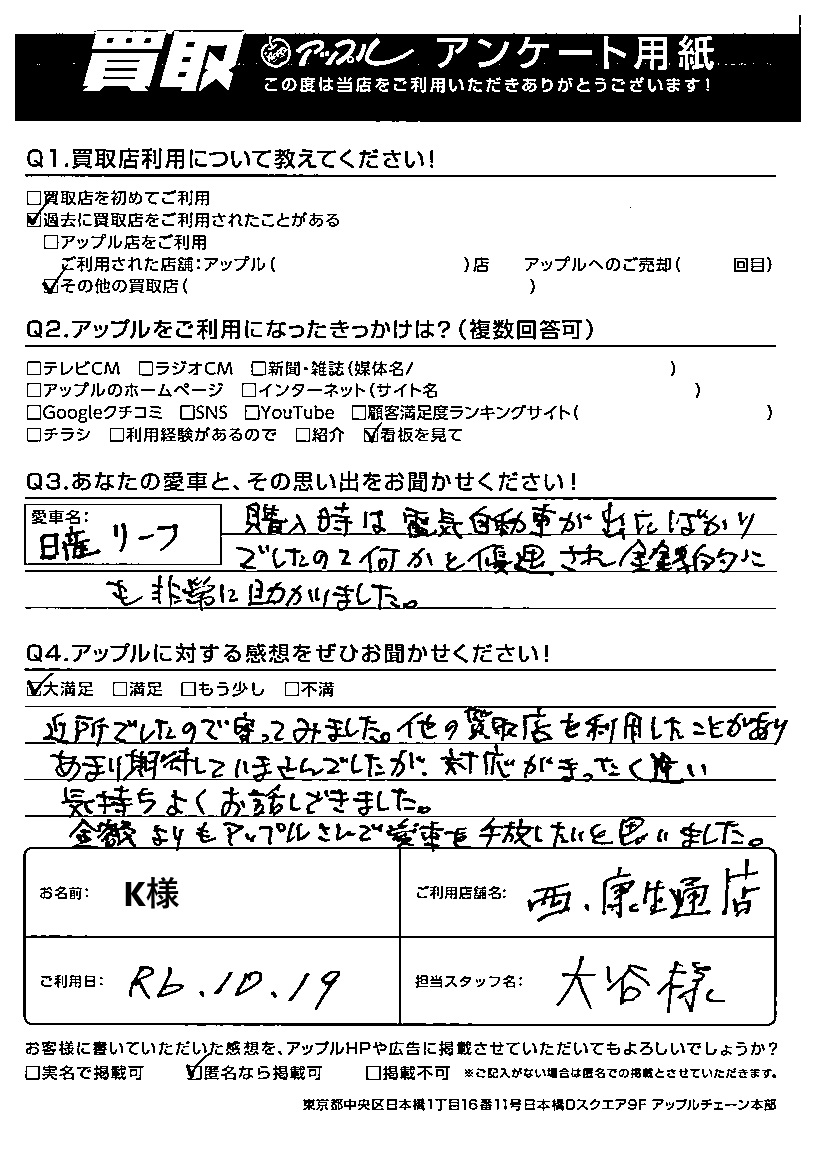 買取 アップル アンケート用紙
この度は当店をご利用いただきありがとうございます!
Q1.買取店利用について教えてください!
□買取店を初めてご利用
☑過去に買取店をご利用されたことがある
□アップル店をご利用
ご利用された店舗:アップル( )店 アップルへのご売却( 回目)
☑その他の買取店( )
Q2.アップルをご利用になったきっかけは?(複数回答可)
□テレビCM □ラジオCM □新聞・雑誌(媒体名/ )
□アップルのホームページ □インターネット(サイト名 )
□Googleクチコミ □SNS □YouTube □顧客満足度ランキングサイト( )
□チラシ □利用経験があるので □紹介 ☑看板を見て
Q3.あなたの愛車と、その思い出をお聞かせください!
愛車名: 日産 リーフ
購入時は電気自動車が出たばかり
でしたので何かと優遇され金銭的に
も非常に助かりました。
Q4.アップルに対する感想をぜひお聞かせください!
☑大満足 □満足 □もう少し □不満
近所でしたので寄ってみました。他の買取店を利用したことがあり
あまり期待していませんでしたが、対応がまったく違い
気持ちよくお話しできました。
金額よりもアップルさんで愛車を手放したいと思いました。
お名前: K様 ご利用店舗名: 西、康生通店
ご利用日: R6.10.19 担当スタッフ名: 大谷様
お客様に書いていただいた感想を、アップルHPや広告に掲載させていただいてもよろしいでしょうか?
□実名で掲載可 ☑匿名なら掲載可 □掲載不可 ※ご記入がない場合は匿名での掲載とさせていただきます。
東京都中央区日本橋1丁目16番11号日本橋Dスクエア9F アップルチェーン本部